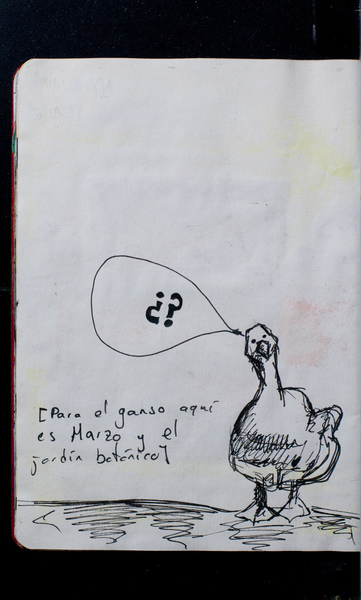 ¿?
[Para el ganso aquí
es Marzo y el
jardín botánico]